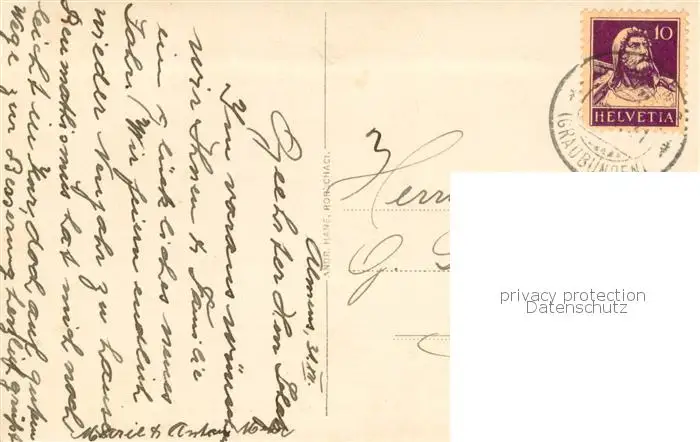 Almens, 31.
Geehrter Herr
Im voraus wünschen
wir Ihnen & Familie
ein glückliches neues
Jahr! Wir feiern endlich
wieder Neujahr zu Hause
Rheumathismus hat mich noch
leicht in Kur, doch auf gutem
Wege zur Besserung herzlich grüsst
Marie & Anton
ANDR. HANE, RORSCHACH.
10
HELVETIA
(GRAUBÜNDEN)
Herrn
G.
privacy protection
Datenschutz